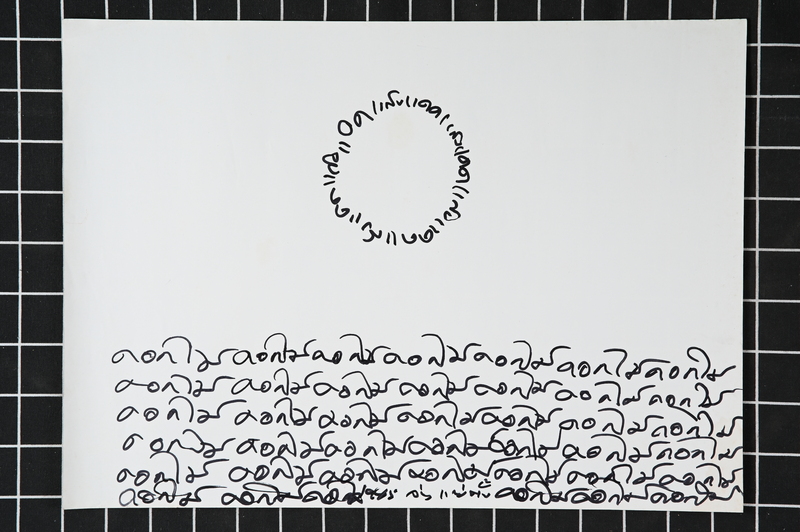 แสงแดดแสงแดดแสงแดดแสงแดดแสงแดด
ดอกไม้ดอกไม้ดอกไม้ดอกไม้ดอกไม้ดอกไม้ดอกไม้
ดอกไม้ดอกไม้ดอกไม้ดอกไม้ดอกไม้ดอกไม้ดอกไม้
ดอกไม้ดอกไม้ดอกไม้ดอกไม้ดอกไม้ดอกไม้ดอกไม้
ดอกไม้ดอกไม้ดอกไม้ดอกไม้ดอกไม้ดอกไม้ดอกไม้
ดอกไม้ดอกไม้ดอกไม้ดอกไม้ดอกไม้ดอกไม้ดอกไม้
ดอกไม้ดอกไม้ดอกไม้ ดอกไม้ดอกไม้ดอกไม้